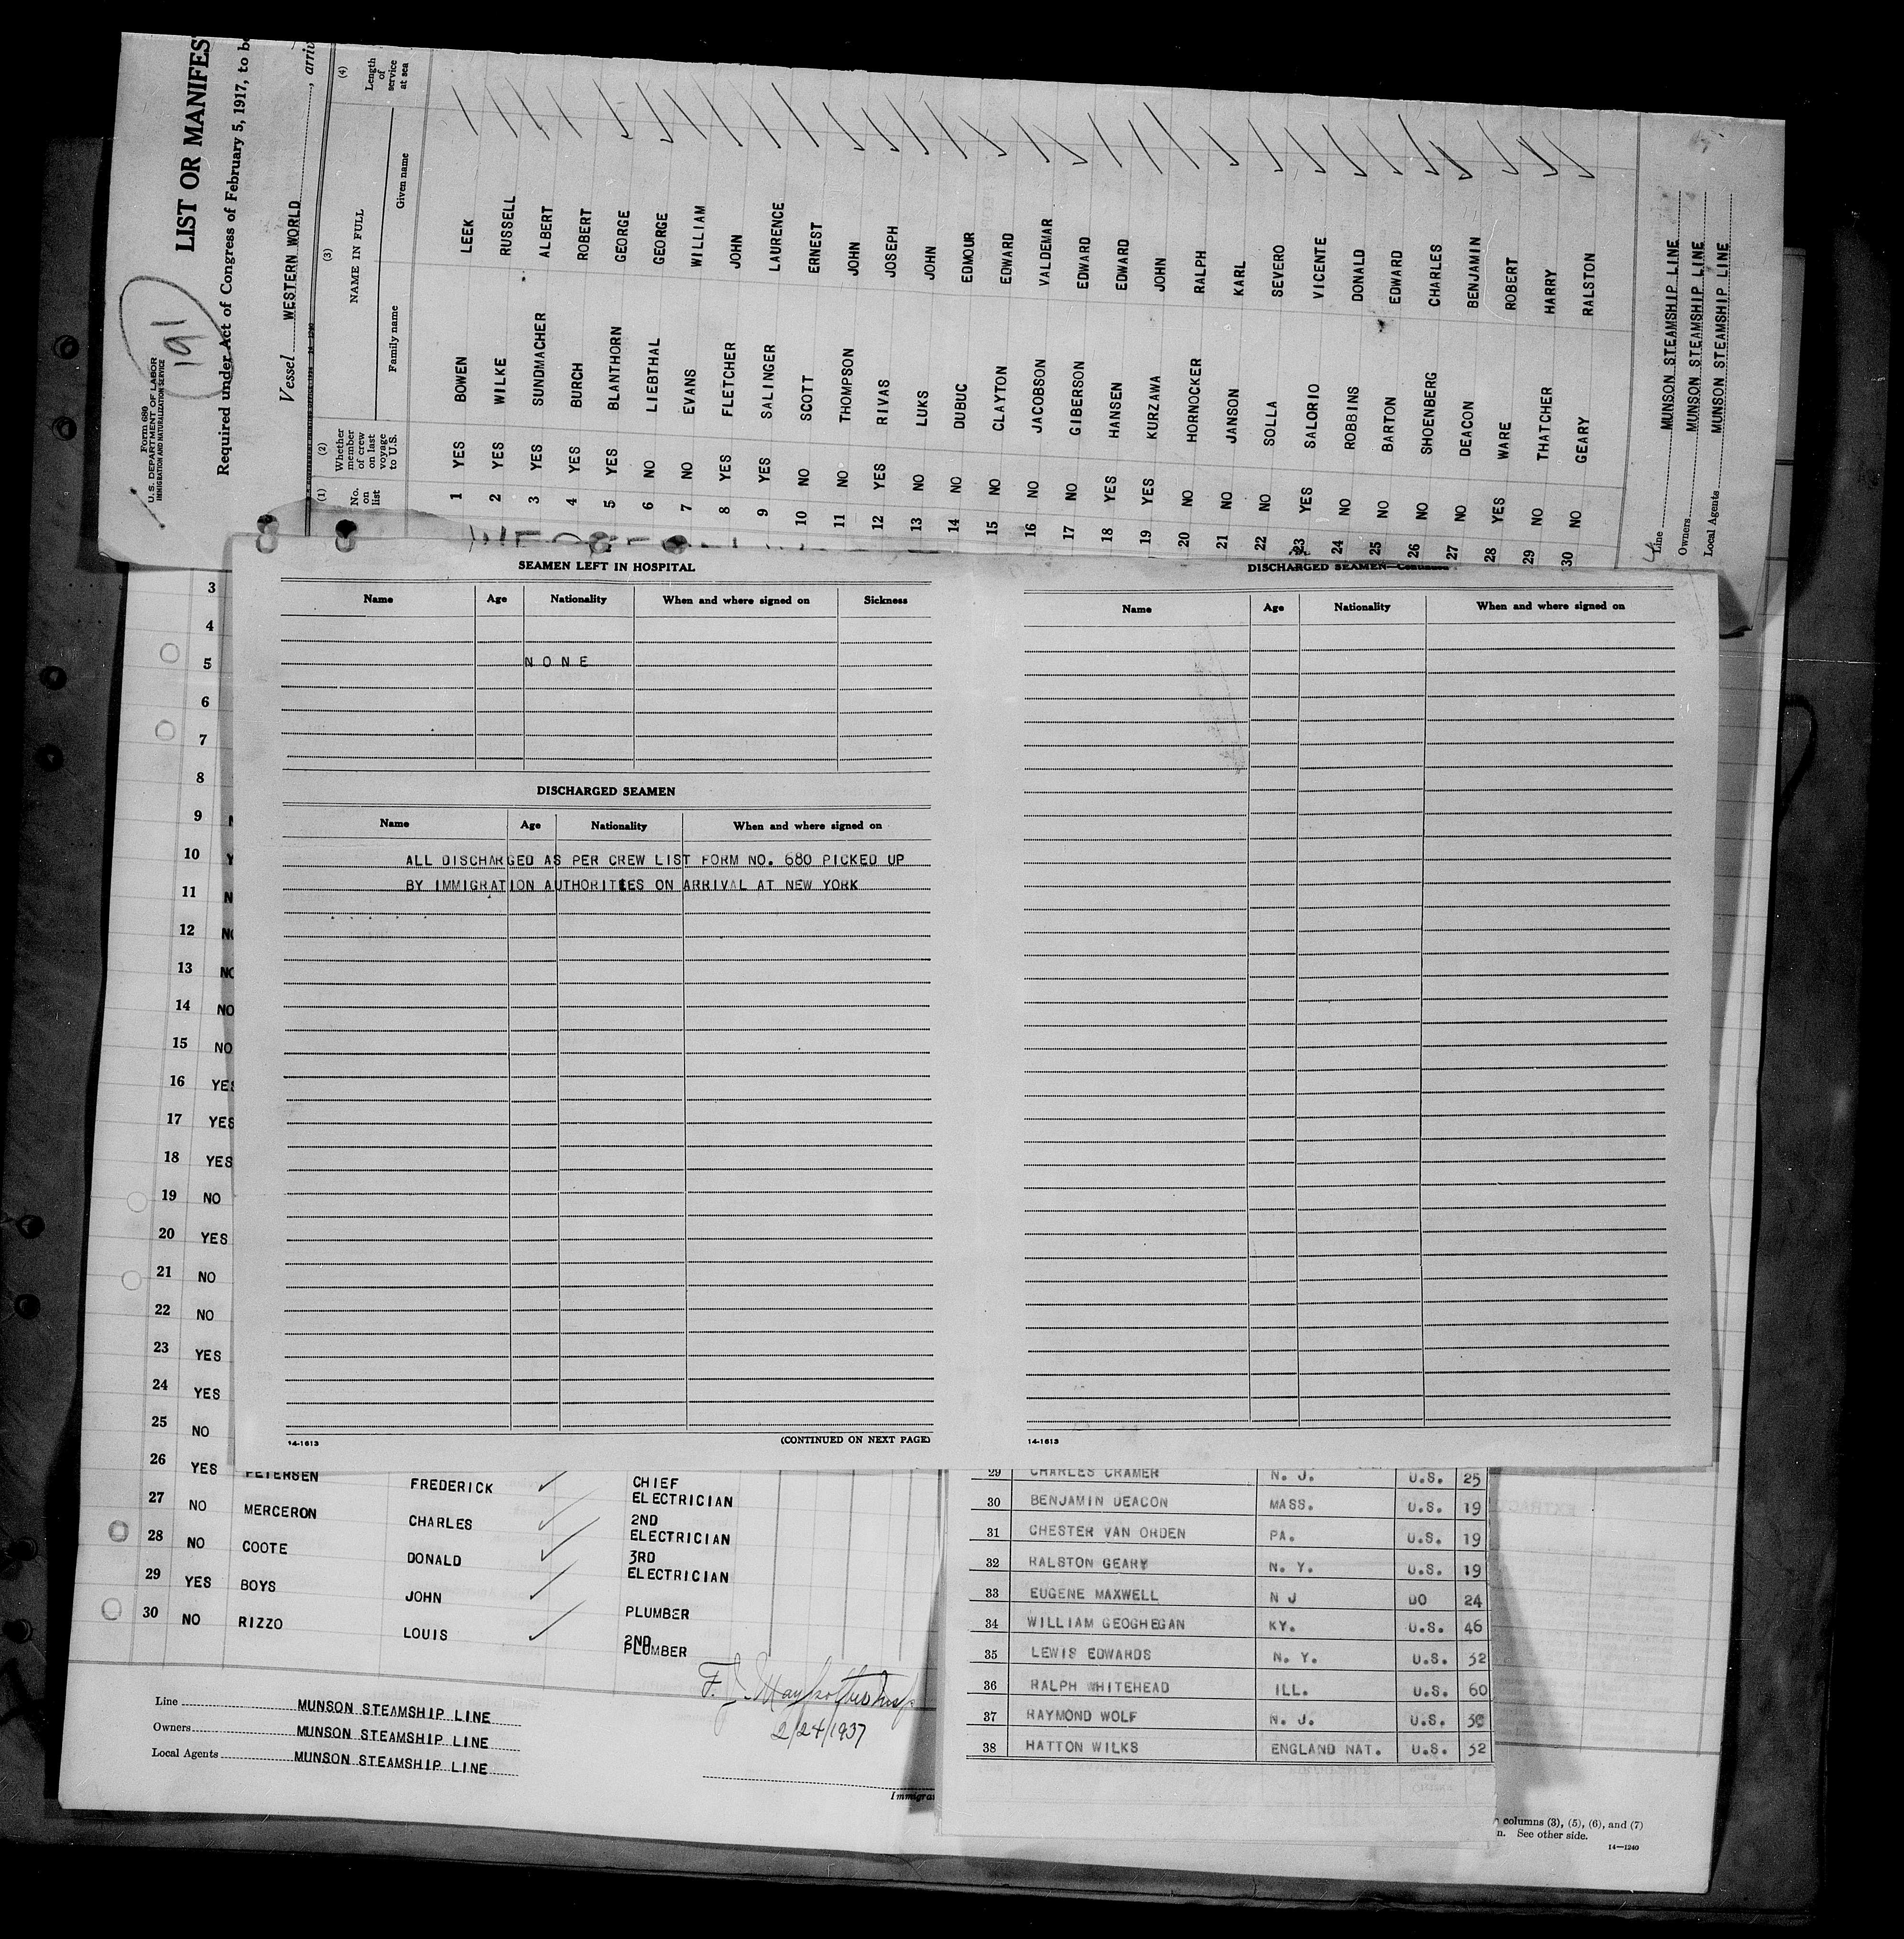 Form 680
U.S. DEPARTMENT OF LABOR
IMMIGRATION AND NATURALIZATION SERVICE
191
LIST OR MANIFES
Required under Act of Congress of February 5, 1917, to be
Vessel WESTERN WORLD, arriv
(1) (2) (3) (4)
No. on list Whether member of crew on last voyage to U.S. NAME IN FULL Length of service at sea
Family name Given name
1 YES BOWEN LEEK
2 YES WILKE RUSSELL
3 YES SUNDMACHER ALBERT
4 YES BURCH ROBERT
5 YES BLANTHORN GEORGE
6 NO LIEBTHAL GEORGE
7 NO EVANS WILLIAM
8 YES FLETCHER JOHN
9 YES SALINGER LAURENCE
10 NO SCOTT ERNEST
11 NO THOMPSON JOHN
12 YES RIVAS JOSEPH
13 NO LUKS JOHN
14 NO DUBUC EDMOUR
15 NO CLAYTON EDWARD
16 NO JACOBSON VALDEMAR
17 NO GIBERSON EDWARD
18 YES HANSEN EDWARD
19 YES KURZAWA JOHN
20 NO HORNOCKER RALPH
21 NO JANSON KARL
22 NO SOLLA SEVERO
23 YES SALORIO VICENTE
24 NO ROBBINS DONALD
25 NO BARTON EDWARD
26 NO SHOENBERG CHARLES
27 NO DEACON BENJAMIN
28 YES WARE ROBERT
29 NO THATCHER HARRY
30 NO GEARY RALSTON
Line MUNSON STEAMSHIP LINE
Owners MUNSON STEAMSHIP LINE
Local Agents MUNSON STEAMSHIP LINE
SEAMEN LEFT IN HOSPITAL
Name Age Nationality When and where signed on Sickness
NONE
DISCHARGED SEAMEN
Name Age Nationality When and where signed on
ALL DISCHARGED AS PER CREW LIST FORM NO. 680 PICKED UP
BY IMMIGRATION AUTHORITIES ON ARRIVAL AT NEW YORK
14-1613 (CONTINUED ON NEXT PAGE)
DISCHARGED SEAMEN—Continued
Name Age Nationality When and where signed on
14-1613
3
4
5
6
7
8
9 N
10 Y
11 N
12 NO
13 NO
14 NO
15 NO
16 YES
17 YES
18 YES
19 NO
20 YES
21 NO
22 NO
23 YES
24 YES
25 NO
26 YES PETERSEN FREDERICK CHIEF ELECTRICIAN
27 NO MERCERON CHARLES 2ND ELECTRICIAN
28 NO COOTE DONALD 3RD ELECTRICIAN
29 YES BOYS JOHN PLUMBER
30 NO RIZZO LOUIS 2ND PLUMBER
Line MUNSON STEAMSHIP LINE
Owners MUNSON STEAMSHIP LINE
Local Agents MUNSON STEAMSHIP LINE
2/24/1937
Immigra
29 CHARLES CRAMER N. J. U.S. 25
30 BENJAMIN DEACON MASS. U.S. 19
31 CHESTER VAN ORDEN PA. U.S. 19
32 RALSTON GEARY N. Y. U.S. 19
33 EUGENE MAXWELL N J DO 24
34 WILLIAM GEOGHEGAN KY. U.S. 46
35 LEWIS EDWARDS N. Y. U.S. 32
36 RALPH WHITEHEAD ILL. U.S. 60
37 RAYMOND WOLF N. J. U.S. 30
38 HATTON WILKS ENGLAND NAT. U.S. 32
columns (3), (5), (6), and (7)
n. See other side.
14—1240